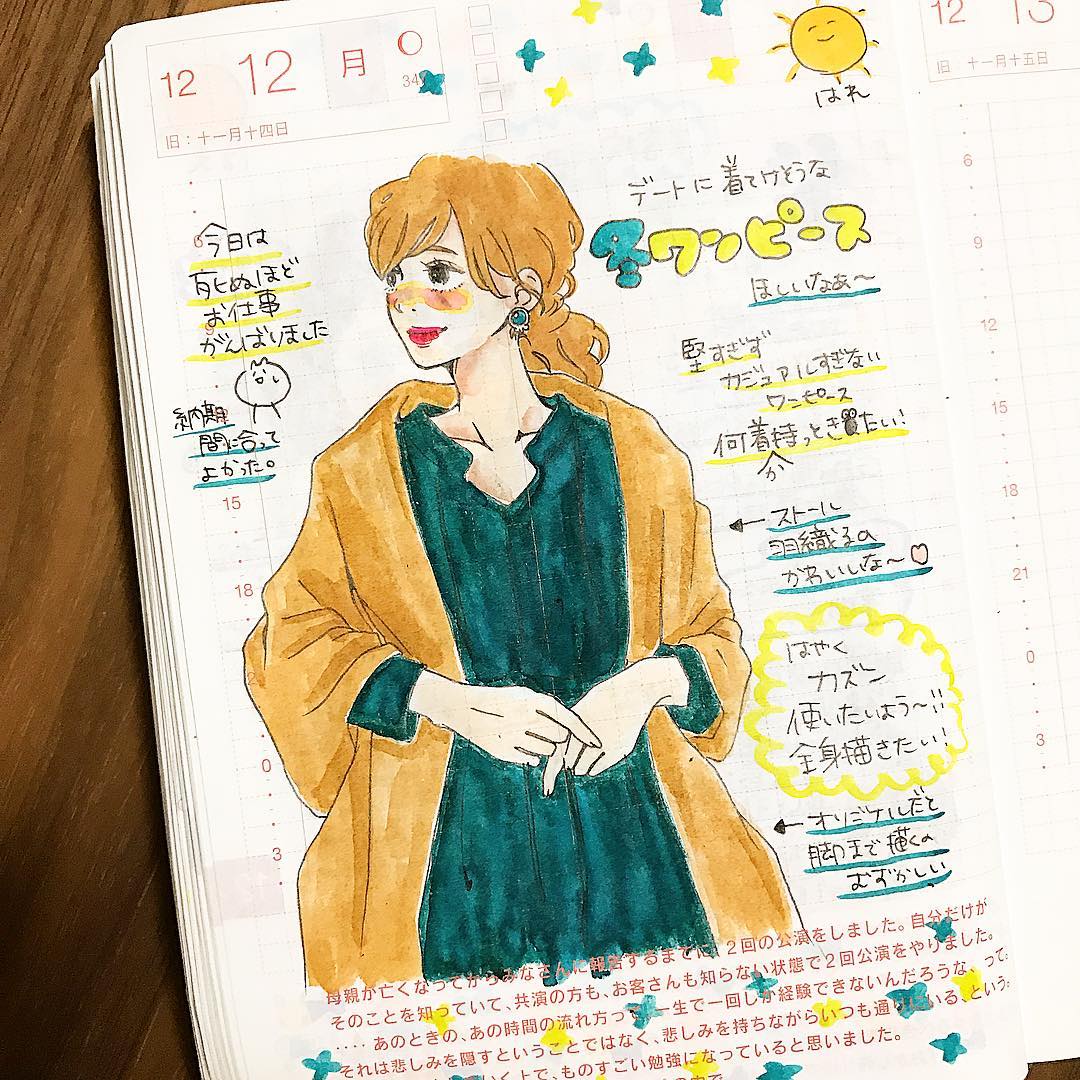 12 12 月
34
旧:十一月十四日
はれ
12 13
旧 十一月十五日
デートに着てけそうな
冬ワンピース
ほしいなあ〜
今日は
死ぬほど
お仕事
がんばりました
納期
間に合って
よかった。
堅すぎず
カジュアルすぎない
ワンピース
何着か持っときたい!
ストール
羽織るの
かわいいしな〜
はやく
カズン
使いたいよう〜!!
全身描きたい!
オリジナルだと
脚まで描くの
むずかしい
6
9
12
15
18
21
0
3
15
18
0
3
母親が亡くなってからみなさんに報告するまでに、2回の公演をしました。自分だけが
そのことを知っていて、共演の方も、お客さんも知らない状態で2回公演をやりました。
‥‥あのときの、あの時間の流れ方って、一生で一回しか経験できないんだろうな、って。
それは悲しみを隠すということではなく、悲しみを持ちながらいつも通りにいる、という
いく上で、ものすごい勉強になっていると思いました。